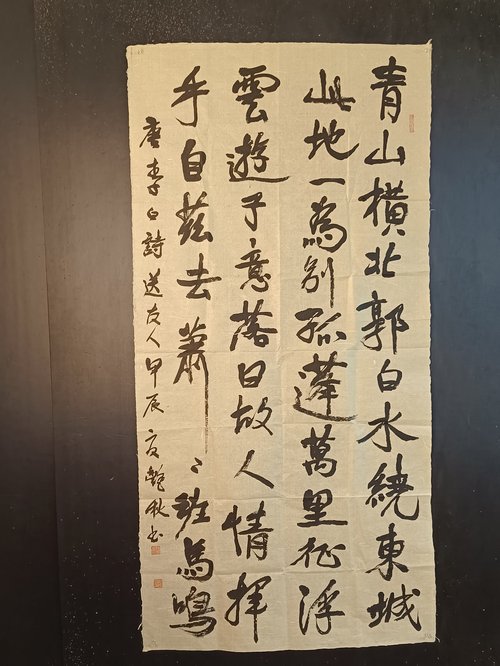 青山橫北郭白水繞東城
此地一為別孤蓬萬里征浮
雲遊子意落日故人情揮
手自茲去蕭〻班馬鳴
唐李白詩送友人甲辰夏艷秋书